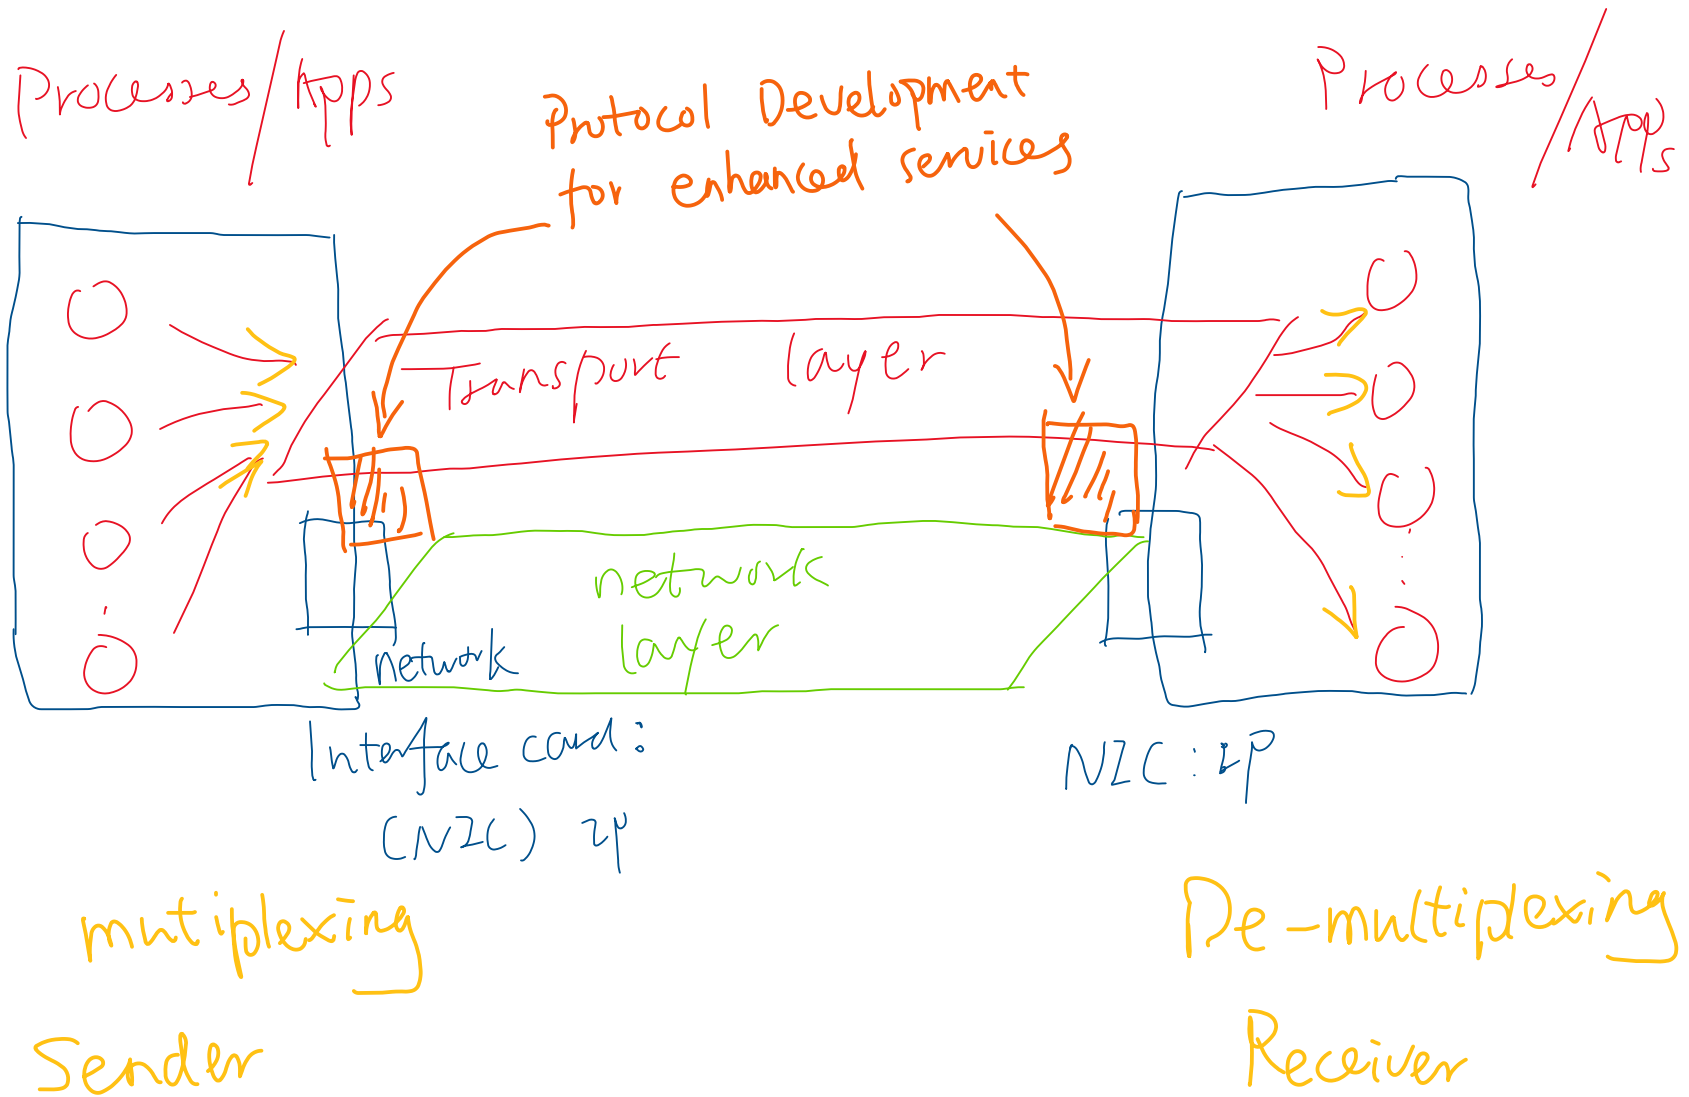 Processes/Apps
Protocol Development
for enhanced services
Processes
/Apps
Transport layer
network
layer
network
Interface card:
(NIC) IP
NIC: IP
mutiplexing
De-multiplexing
Sender
Receiver